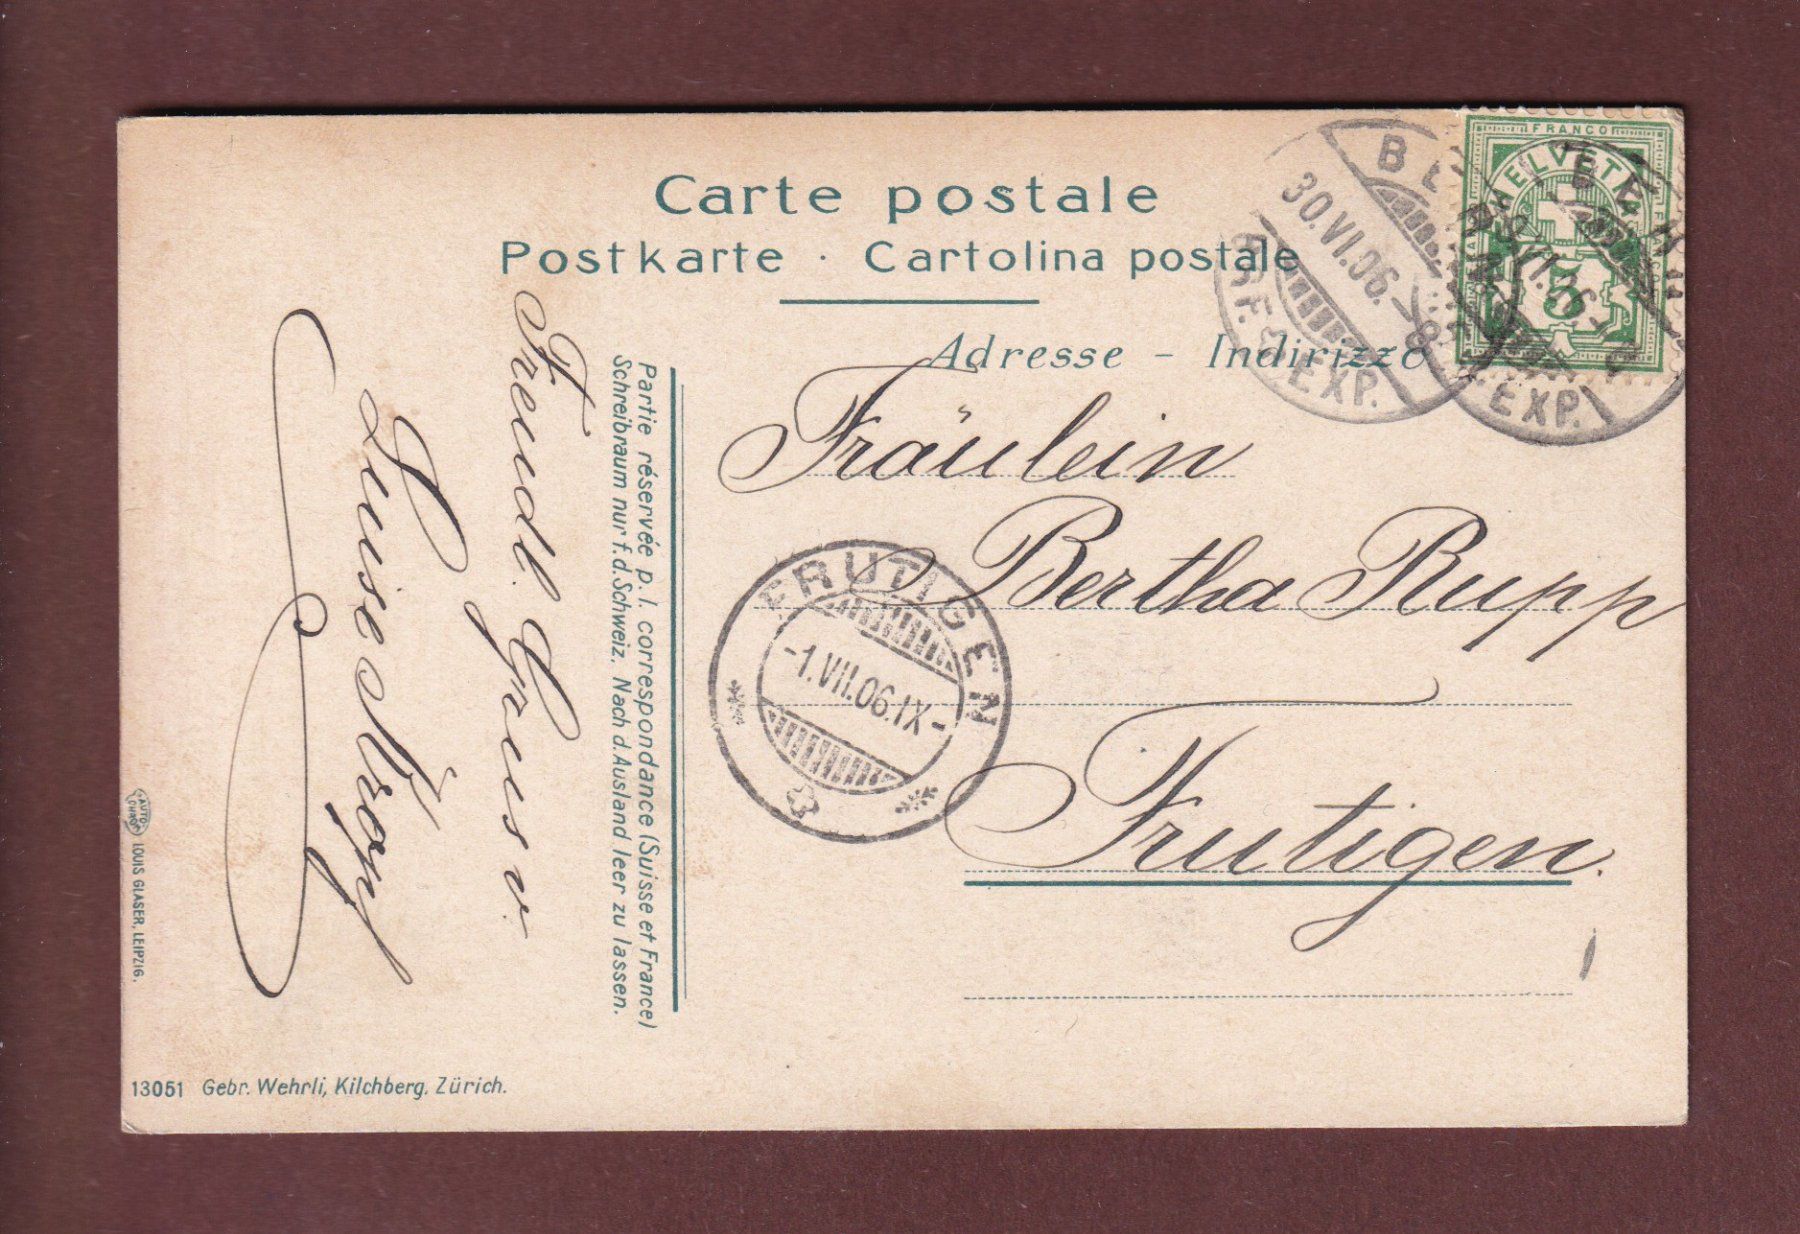 Carte postale
Postkarte · Cartolina postale
Adresse - Indirizzo
FRANCO
HELVETIA
5
BERN
30.VI.06.-8
BRF. & EXP.
BERN
30.VI.06.-8
EXP.
Fräulein
Bertha Rupp
Frutigen.
FRUTIGEN
-1.VII.06.IX-
Partie réservée p. l. correspondance (Suisse et France)
Schreibraum nur f. d. Schweiz. Nach d. Ausland leer zu lassen.
Freundl. Gruss v.
Luise
AUTO-CHROM
LOUIS GLASER, LEIPZIG.
13051 Gebr. Wehrli, Kilchberg. Zürich.